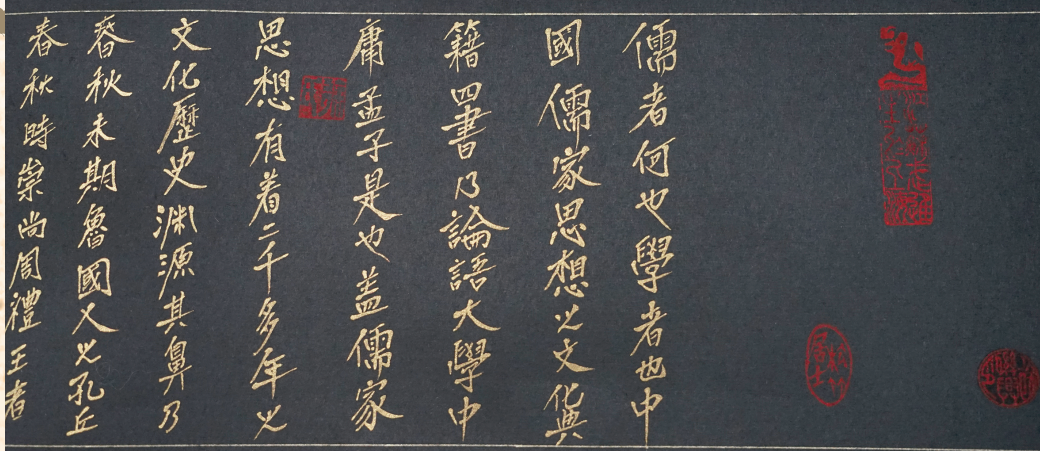 儒者何也學者也中
國儒家思想之文化典
籍四書乃論語大學中
庸孟子是也蓋儒家
思想有着二千多年之
文化歷史淵源其鼻乃
春秋末期魯國人之孔丘
春秋時崇尚周禮王者